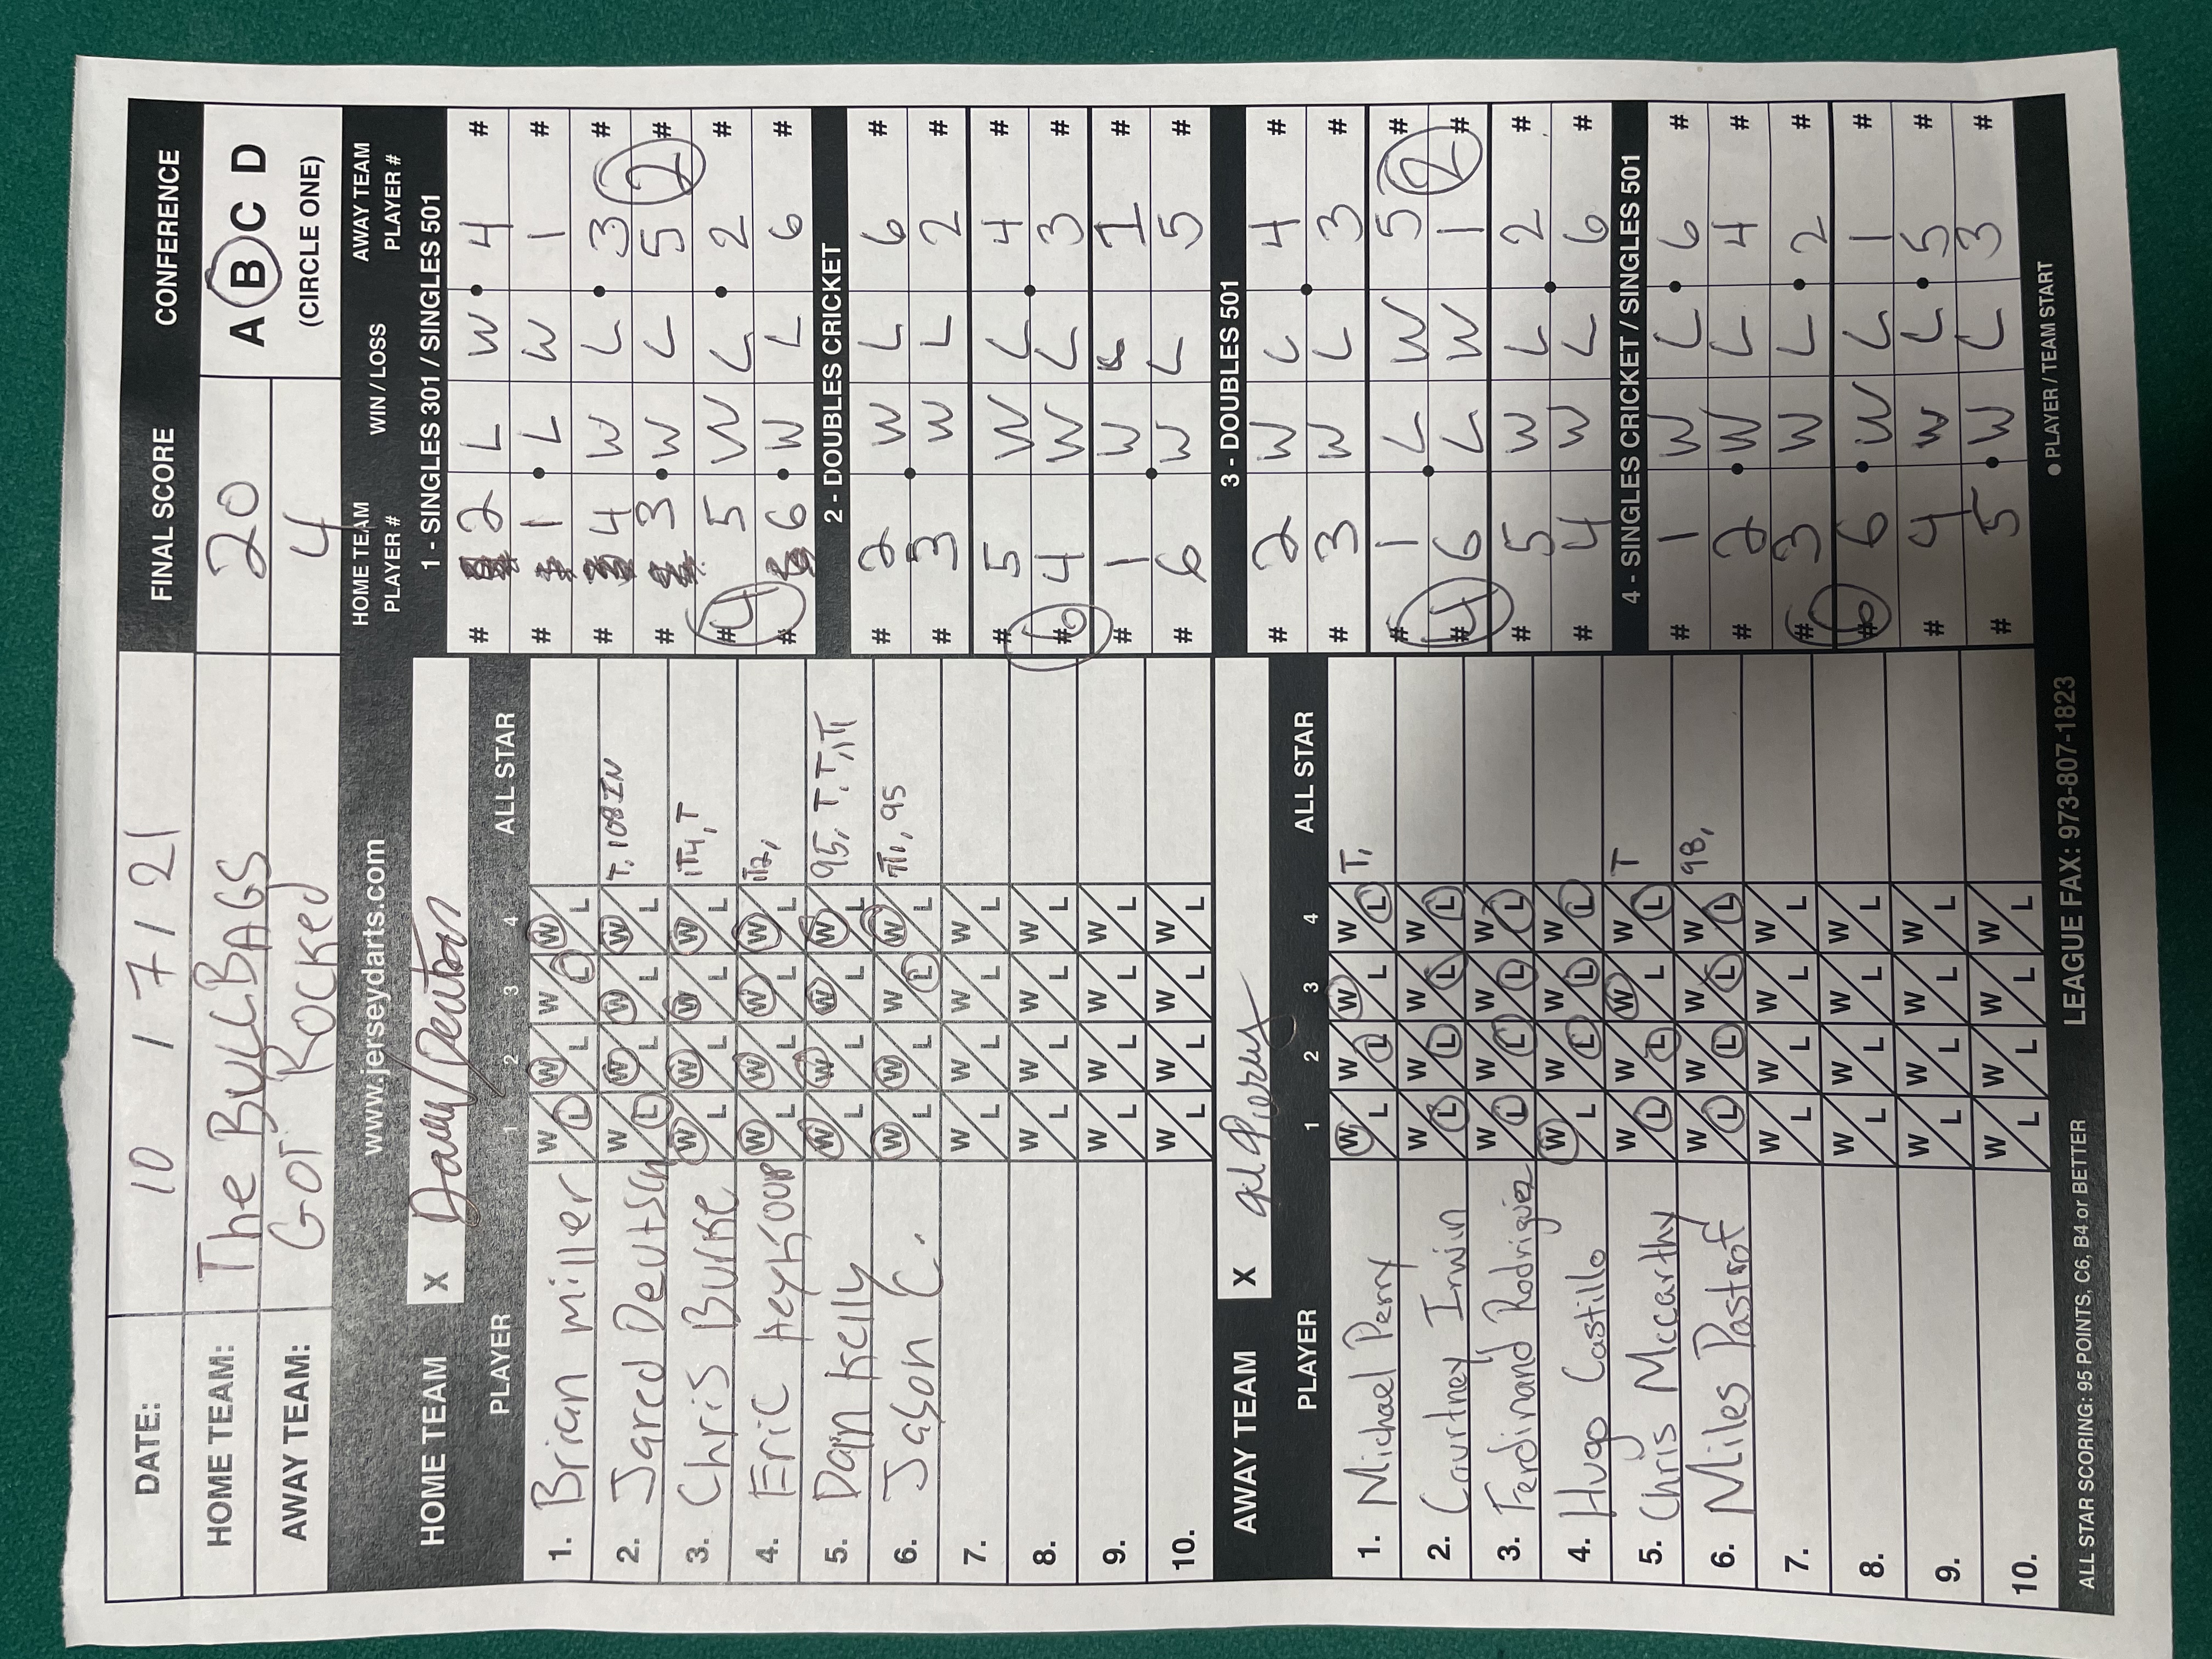 DATE: 10 / 7 / 21 FINAL SCORE CONFERENCE
HOME TEAM: The BULLBAGS 20 A B C D
AWAY TEAM: GOT ROCKED 4 (CIRCLE ONE)
www.jerseydarts.com
HOME TEAM X
PLAYER 1 2 3 4 ALL STAR
1. Brian miller W/L W/L W/L W/L
2. Jared Deutsch W/L W/L W/L W/L T, 108 IN
3. Chris Burke W/L W/L W/L W/L 1T4, T
4. Eric Heyhoop W/L W/L W/L W/L
5. Dan Kelly W/L W/L W/L W/L 95, T, T, 1T
6. Jason C. W/L W/L W/L W/L 95
7. W/L W/L W/L W/L
8. W/L W/L W/L W/L
9. W/L W/L W/L W/L
10. W/L W/L W/L W/L
AWAY TEAM X
PLAYER 1 2 3 4 ALL STAR
1. Michael Perry W/L W/L W/L W/L T,
2. Courtney Irwin W/L W/L W/L W/L
3. Ferdinand Rodriguez W/L W/L W/L W/L
4. Hugo Castillo W/L W/L W/L W/L
5. Chris Mccarthy W/L W/L W/L W/L T
6. Miles Pastrof W/L W/L W/L W/L 98,
7. W/L W/L W/L W/L
8. W/L W/L W/L W/L
9. W/L W/L W/L W/L
10. W/L W/L W/L W/L
ALL STAR SCORING: 95 POINTS, C6, B4 or BETTER LEAGUE FAX: 973-807-1823
HOME TEAM PLAYER # WIN / LOSS AWAY TEAM PLAYER #
1 - SINGLES 301 / SINGLES 501
# 2 L W 4 #
# 1 L W 1 #
# 4 W L 3 #
# 3 W L 5 2 #
# 4 5 W L 2 #
# 6 W L 6 #
2 - DOUBLES CRICKET
# 2 W L 6 #
# 3 W L 2 #
# 5 W L 4 #
# 6 4 W L 3 #
# 1 W L 1 #
# 6 W L 5 #
3 - DOUBLES 501
# 2 W L 4 #
# 3 W L 3 #
# 1 L W 5 #
# 4 6 L W 1 2 #
# 5 W L 2 #
# 4 W L 6 #
4 - SINGLES CRICKET / SINGLES 501
# 1 W L 6 #
# 2 W L 4 #
# 3 W L 2 #
# 6 6 W L 1 #
# 4 W L 5 #
# 5 W L 3 #
● PLAYER / TEAM START